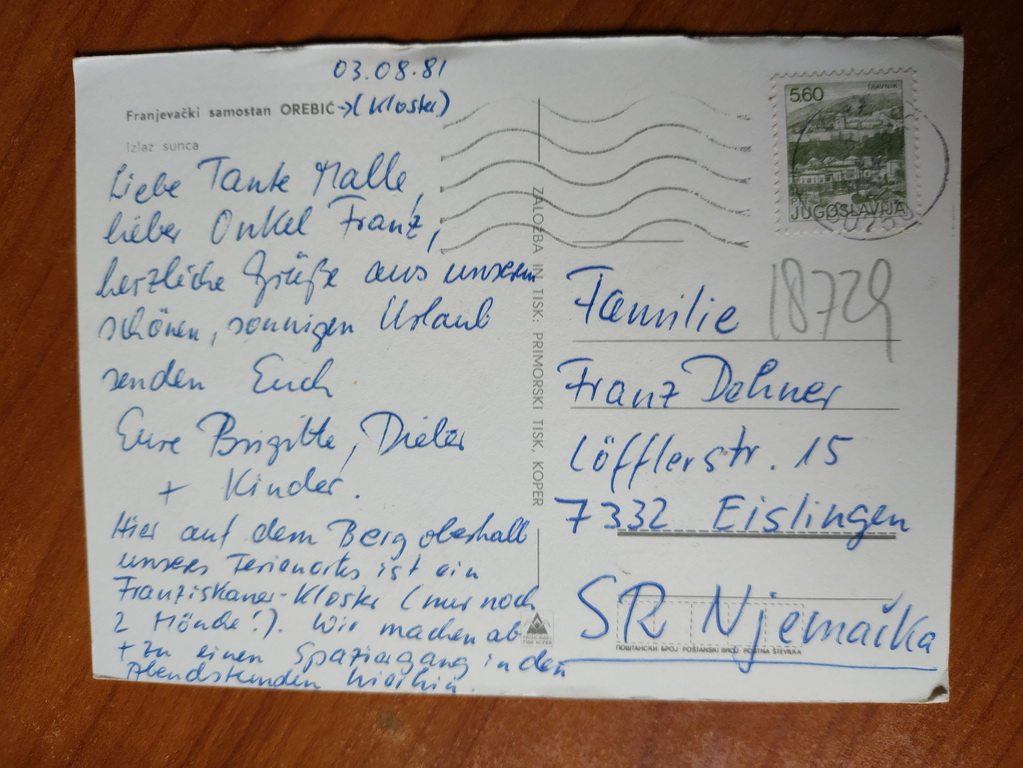 03.08.81
Franjevački samostan OREBIĆ →(Kloster)
Izlaz sunca
Liebe Tante Malle,
lieber Onkel Franz,
herzliche Grüße aus unserem
schönen, sonnigen Urlaub
senden Euch
Eure Brigitte, Dieter
+ Kinder.
Hier auf dem Berg oberhalb
unseres Ferienortes ist ein
Franziskaner-Kloster (nur noch
2 Mönche!). Wir machen ab
+ zu einen Spaziergang in den
Abendstunden hierhin.
ZALOŽBA IN TISK: PRIMORSKI TISK, KOPER
5,60
TRAVNIK
JUGOSLAVIJA
18729
Familie
Franz Dehner
Löfflerstr. 15
7332 Eislingen
SR Njemačka
ПОШТАНСКИ БРОЈ POŠTANSKI BROJ POŠTNA ŠTEVILKA